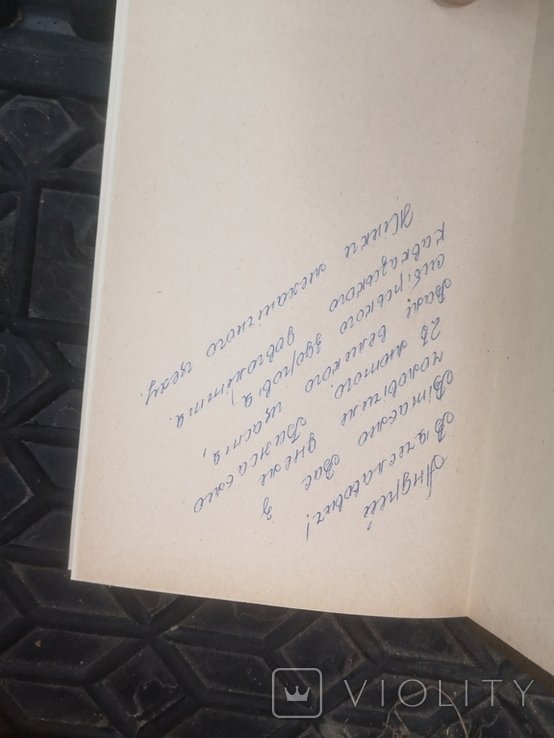 Андрей
Вячеславович!
Вітаємо Вас з
чоловічим днем
23 лютого. Бажаємо
Вам великого щастя,
сибірського здоров'я,
кавказського довголіття.
Жінки механічного цеху.
VIOLITY